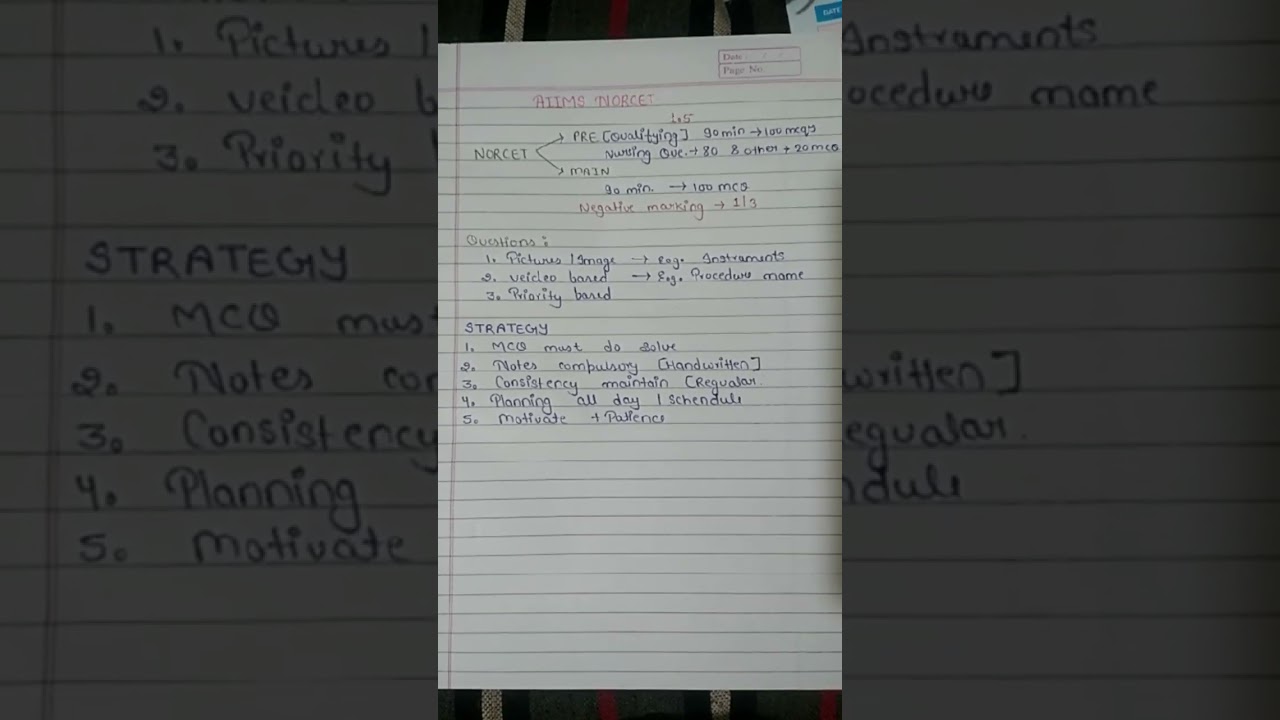 DATE
Date : / /
Page No.
AIIMS NORCET
1.5
PRE [Qualifying] 90 min → 100 mcqs
NORCET
Nursing Que. → 80 & other + 20 mcq
MAIN
90 min. → 100 mcq
Negative marking → 1/3
Questions :
1. Pictures / Image → e.g. Instraments
2. veideo based → E.g. Procedure mame
3. Priority based
STRATEGY
1. MCQ must do solve
2. Notes compulsory [Handwritten]
3. Consistency maintain [Regualar.
4. Planning all day / Schendule
5. Motivate + Patience